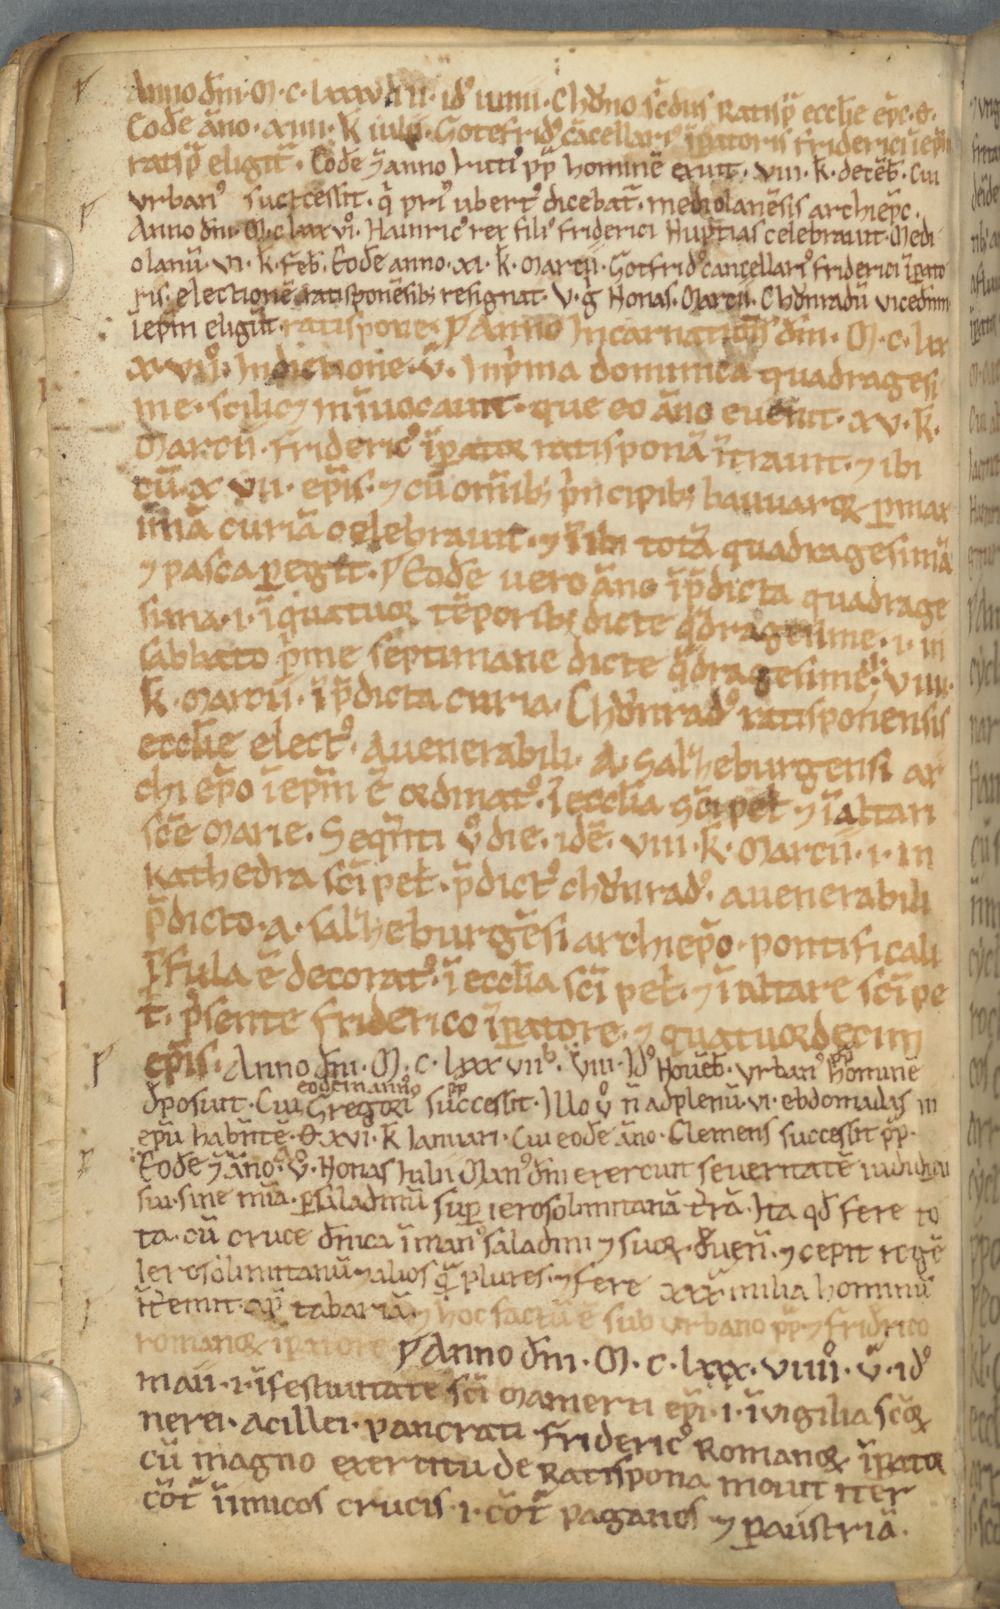 Anno dn̄i · M · c · lxxxv · iii · id᷒ iunii · Chv̊no sc̄dus Ratisp̄ eccl̄ie ep̄c · o ·
Eodē ān̄o · xiiii · k̄ iulii · Gotefrid᷒ cācellari᷒ īp̄atoris friderici ī ep̄m
ratisp̄ eligit̄ · Eodē ⁊ anno lutii᷒ pp̄ hominē exuit · viii · k̄ · decēb · Cui
vrban᷒ successit · q̄ pri᷒ ubert᷒ dicebat̄ · mediolanēsis archiep̄c ·
Anno dn̄i · M · c · lxxxvi᷒ · Hainric᷒ rex fili᷒ friderici Nuptias celebrauit · Medi
olanū · vi · k̄ · feb̄ · Eodē anno · xi · k̄ · marcii · Gotfrid᷒ cancellari᷒ friderici īp̄ato
ris · electionē ratisponēsib; resignat · v · g̊ Nonas · Marcii · Chv̊nradū vicednm
ī ep̄m eligūt ratispone · Anno Incarnationis dn̄i · M · c · lxx
x · vii᷒ · Indictione · v̄ · In p̄ma dominica quadragesi
me · scilic⁊ Inuocauit · que eo āno euenit · xv · k̄ ·
Marcii · frideric᷒ īp̄ator ratisponā ītrauit · ⁊ ibi
cū · x vii · ep̄is · ⁊ cū omīb; p̄ncipib; bauuaroꝝ ꝑmax
imā curiā celebrauit · ⁊ ibi totā quadragesimā
⁊ pasca ꝑegit · Eodē uero āno ī p̄dicta quadrage
sima · i · ī quatuor tēporib; dicte q̄dragesime · i · in
sabbato p̄me septimane dicte q̄dragesime · viiii ·
k̄ · Marcii · ī p̄dicta curia · Chv̊nrad᷒ ratisponensis
eccl̄ie elect᷒ · a uenerabili · A · Salzheburgensi ar
chi ep̄o ī ep̄m ē ordinat᷒ · ī eccl̄ia sc̄i pet̄ · ⁊ ī altari
sc̄e Marie · Seq̄nti v᷒ die · idē · viii · k̄ · Marcii · i · in
kathedra sc̄i pet̄ · p̄dict᷒ chv̊nrad᷒ · a uenerabili
p̄dicto · A · salzheburgēsi archiep̄o · pontificali
īfula ē decorat᷒ · ī eccl̄ia sc̄i pet̄ · ⁊ ī altare sc̄i pe
t̄ · p̄sente friderico īp̄atore · ⁊ quatuordecim
ep̄is · Anno dn̄i · M · c · lxxx vii᷒ · viii · Id᷒ Nouēb · vrban᷒ pp̄ hominē
dposuit · Cui eodem anno Gregori᷒ pp̄ successit · Illo v᷒ n̄ ad plenū · vi · ebdomadas in
ep̄u habn̄te · o · xvi · k̄ Ianuari · Cui eodē āno · Clemens successit pp̄ ·
Eodē ⁊ āno · v᷒ · Nonas Iulii Man᷒ dn̄i exercuit seueritatē iudicii
sui · sine mīa · ꝑ saladinū suꝑ ierosolimitanā t̄rā · Ita qd̄ fere to
ta · cū cruce dn̄ica ī man᷒ saladini ⁊ suoꝝ · deuen̄ · ⁊ cepit regē
Ierosolimitanū ⁊ alios q̄ plures · ⁊ fere xxx milia hominū
īteremit · ap̄ tabariā · ⁊ hoc factū ē sub vrbano pp̄ · ⁊ fridrico
romanoꝝ īp̄atore · Anno dn̄i · M · c · lxxx · viiii᷒ · v̄ · id᷒
maii · i · ī festiuitate sc̄i Mamerti ep̄i · i · ī vigilia sc̄oꝝ
nerei · acillei · pancratii frideric᷒ Romanoꝝ īp̄ator
cū magno exercitu de Ratispona mouit iter
cōt̄ īimicos crucis · i · cōt̄ paganos ⁊ ꝑ austriā ·